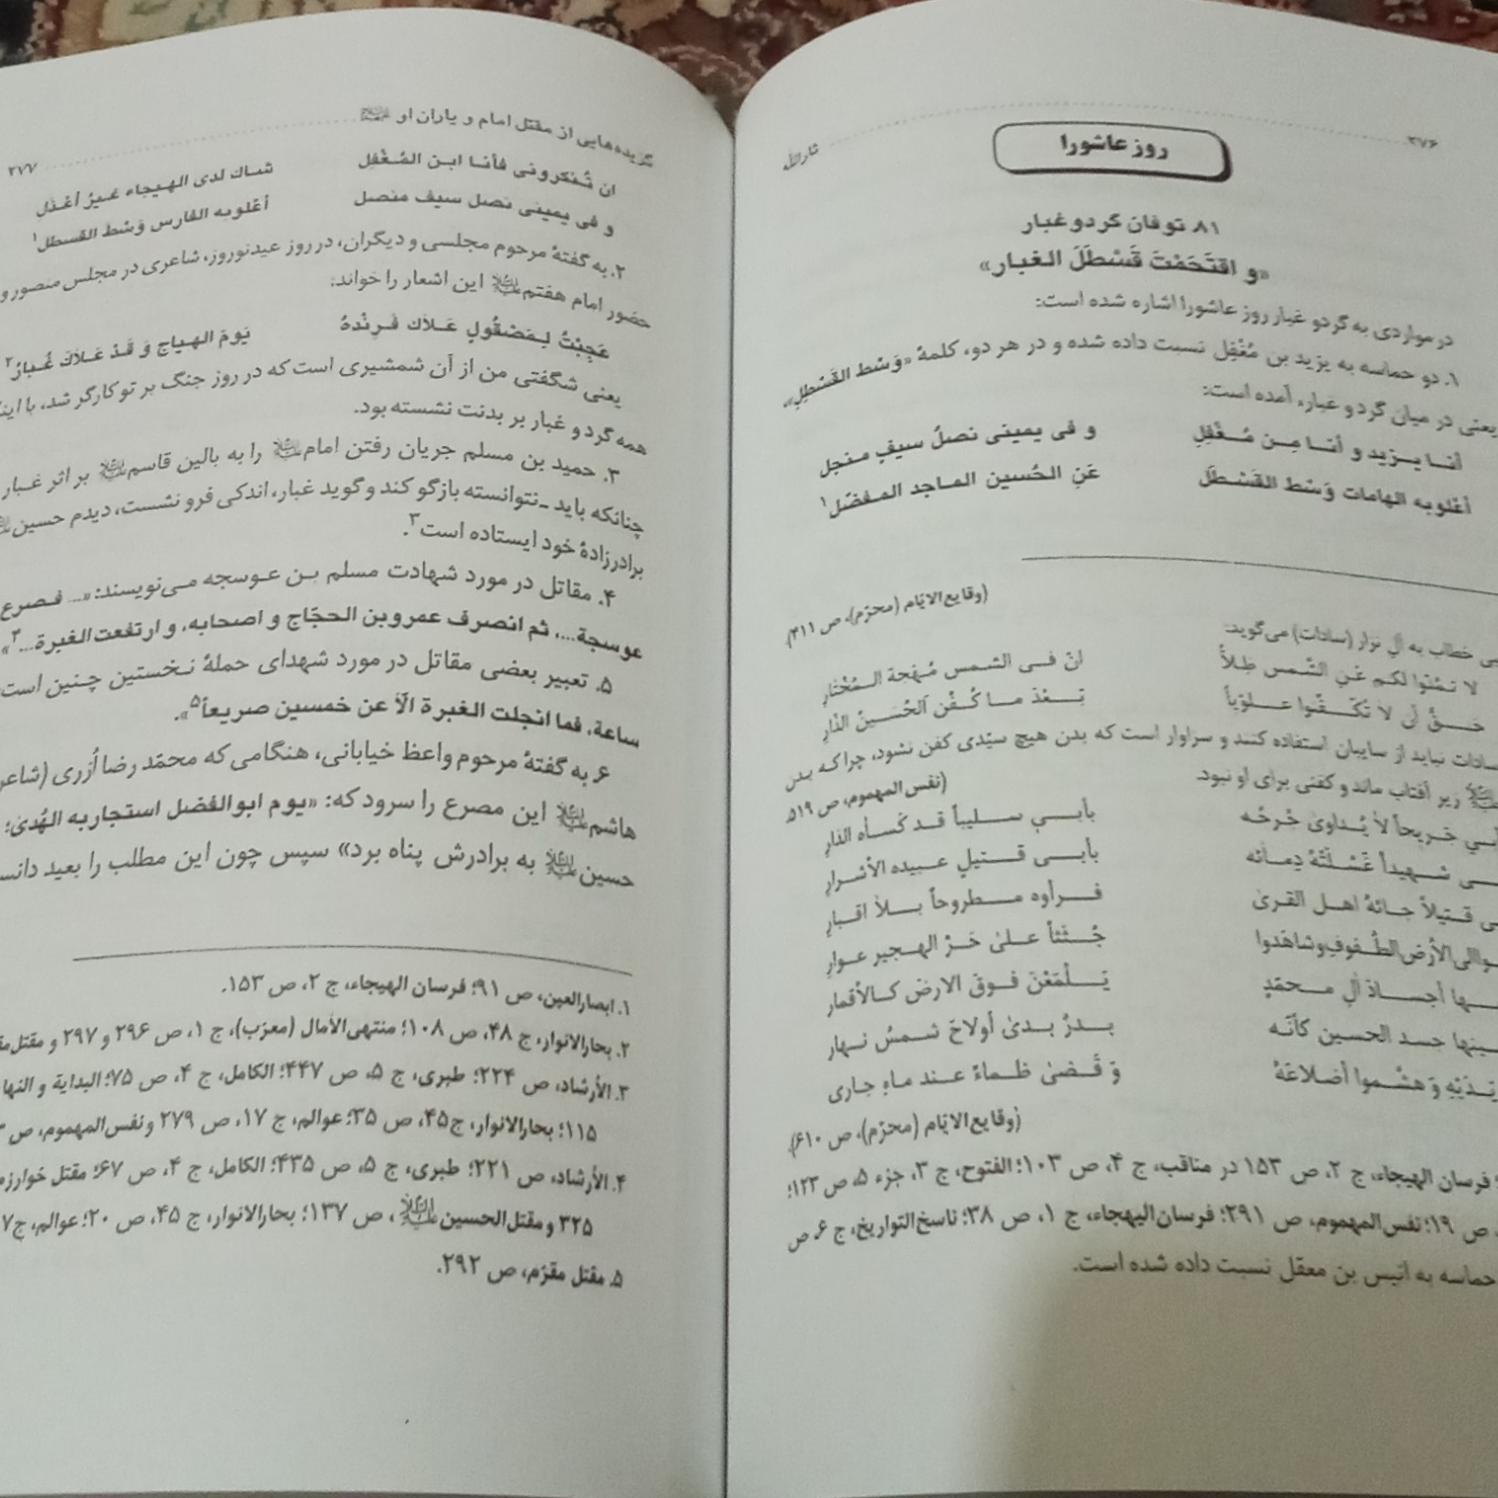 ۳۷۶
ثارالله
روز عاشورا
۸۱. توفان گرد و غبار
«و اقتَحَمْتَ قَسْطَلَ الغبار»
در مواردی به گرد و غبار روز عاشورا اشاره شده است:
۱. دو حماسه به یزید بن مُغْفِل نسبت داده شده و در هر دو، کلمهٔ «وَسْط القَسْطِلِ»،
یعنی در میان گرد و غبار، آمده است:
أنـا یـزید و أنـا مِـن مُـغْفِلِ و فی یمینی نصلُ سیفٍ منجل
أعْلو به الهامات وَسْط القَسْطَل عَنِ الحُسین الماجد المفضّل۱
(وقایع الایّام (محرّم)، ص ۳۱۱).
خطاب به آلِ نزار (سادات) می‌گوید:
لا تـمْنّوا لکم عَنِ الشّمس ظِلاًّ انّ فـی الشمس مُهْجة المُخْتار
حَـقُّ أن لا تُکَـفِّنوا عـلویّاً بَـعْدَ مـا کُـفِّن الحُسَینُ الذّارِ
سادات نباید از سایبان استفاده کنند و سزاوار است که بدن هیچ سیّدی کفن نشود، چرا که بدن
زیر آفتاب ماند و کفنی برای او نبود. (نفس المهموم، ص ۵۱۹).
جَریحاً لا یُداویٰ جُرحُه بأبـی سـلیباً قـد کَساه الذار
شهیداً غَسَّلَتْهُ دِمائه بأبـی قتیلِ عبیده الأشرارِ
قتیلاً جائهُ اهل القریٰ فـرأوه مـطروحاً بـلا اقبارِ
الأرض الطُفوف و شاهَدوا جُثَثاً علیٰ حَرّ الهجیر عوارِ
أجسادَ آلِ محمّدٍ یَلْمَعْنَ فوقَ الارضِ کالأقمار
جسد الحسین کأنّه بدرٌ بدیٰ أولاحَ شمسُ نهار
وَ هشّموا أضلاعَهُ وَ قَضیٰ ظماءً عند ماءٍ جاری
(وقایع الایّام (محرّم)، ص ۶۱۰).
فرسان الهیجاء، ج ۲، ص ۱۵۳ در مناقب، ج ۴، ص ۱۰۳؛ الفتوح، ج ۳، جزء ۵، ص ۱۲۳؛
ص ۱۹؛ نفس المهموم، ص ۲۹۱؛ فرسان الیهجاء، ج ۱، ص ۳۸؛ ناسخ التواریخ، ج ۶، ص
حماسه به انیس بن معقل نسبت داده شده است.
گزیده‌هایی از مقتل امام و یاران او علیه‌السلام
۳۷۷
ان تُنکرونی فأنا ابن المُغْفِلِ شاك لدی الهیجاء غیرُ أعْذَل
و فی یمینی نصل سیف منصل أعْلو به الفارس وَسْطَ القسطل۱
۲. به گفتهٔ مرحوم مجلسی و دیگران، در روز عید نوروز، شاعری در مجلس منصور و
حضور امام هفتم علیه‌السلام این اشعار را خواند:
عَجِبْتُ لِمَصْقُولٍ عَلاَك فَرِنْدهُ یَومَ الهیاجِ وَ قَدْ عَلاَكَ غُبارُ۲
یعنی شگفتی من از آن شمشیری است که در روز جنگ بر تو کارگر شد، با
همه گرد و غبار بر بدنت نشسته بود.
۳. حمید بن مسلم جریان رفتن امام علیه‌السلام را به بالین قاسم علیه‌السلام بر اثر غبار
چنانکه باید ـ نتوانسته بازگو کند و گوید غبار، اندکی فرو نشست، دیدم حسین
برادرزادهٔ خود ایستاده است۳.
۴. مقاتل در مورد شهادت مسلم بن عوسجه می‌نویسند: «... فصرع
عوسجة...، ثم انصرف عمروبن الحجّاج و اصحابه، و ارتفعت الغبرة...۴»
۵. تعبیر بعضی مقاتل در مورد شهدای حملهٔ نخستین چنین است
ساعة، فما انجلت الغبرة الّا عن خمسین صریعاً۵».
۶. به گفتهٔ مرحوم واعظ خیابانی، هنگامی که محمّد رضا اُزری (شاعر
هاشم علیه‌السلام این مصرع را سرود که: «یوم ابوالفضل استجار به الهُدیٰ؛
حسین علیه‌السلام به برادرش پناه برد» سپس چون این مطلب را بعید
۱. ابصارالعین، ص ۹۱؛ فرسان الهیجاء، ج ۲، ص ۱۵۳.
۲. بحارالانوار، ج ۴۸، ص ۱۰۸؛ منتهی الآمال (معرّب)، ج ۱، ص ۲۹۶ و ۲۹۷ و
۳. الأرشاد، ص ۲۲۴؛ طبری، ج ۵، ص ۴۴۷؛ الکامل، ج ۴، ص ۷۵؛ البدایة و
۱۱۵؛ بحارالانوار، ج ۴۵، ص ۳۵؛ عوالم، ج ۱۷، ص ۲۷۹ و نفس المهموم، ص
۴. الأرشاد، ص ۲۲۱؛ طبری، ج ۵، ص ۴۳۵؛ الکامل، ج ۴، ص ۶۷؛ مقتل
۳۲۵ و مقتل الحسین علیه‌السلام، ص ۱۳۷؛ بحارالانوار، ج ۴۵، ص ۲۰؛ عوالم،
۵. مقتل مقرّم، ص ۲۹۲.